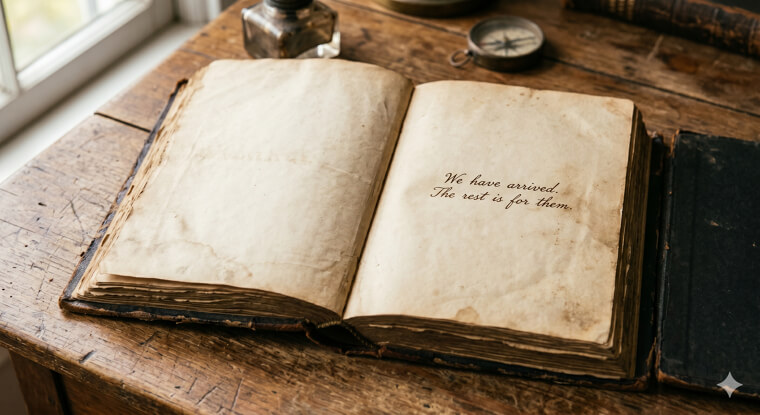 We have arrived.
The rest is for them.